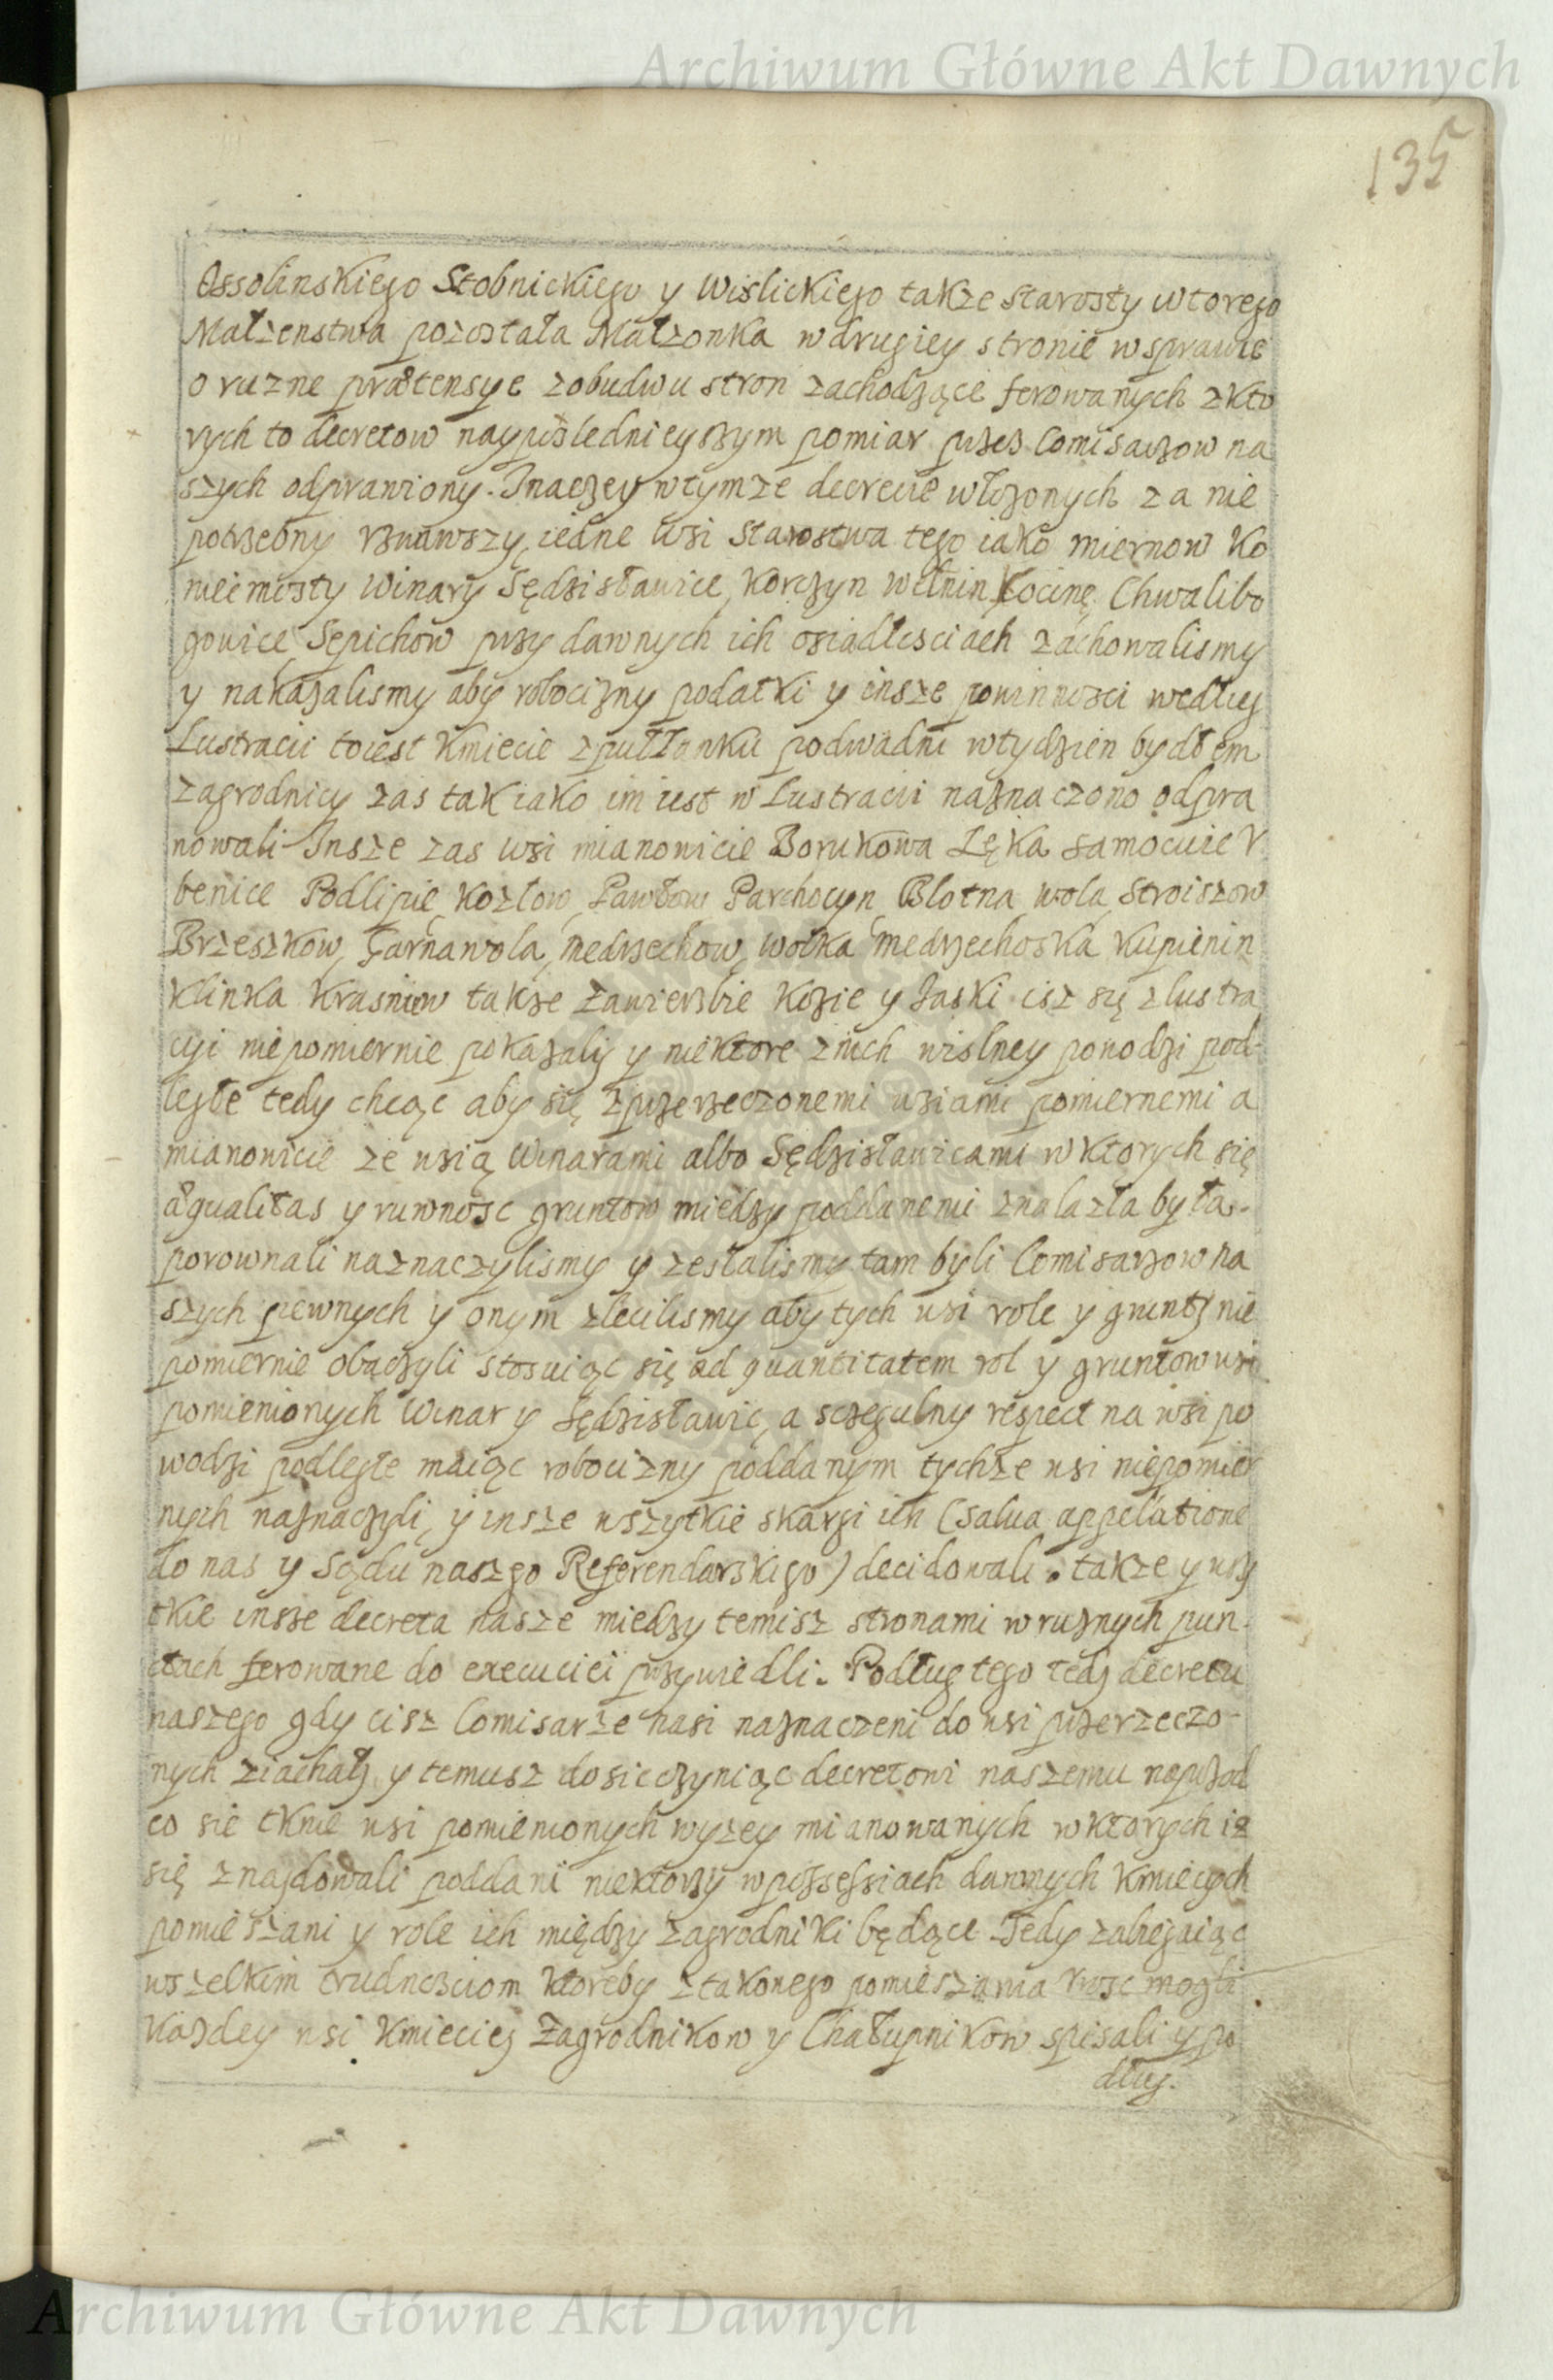 Archiwum Główne Akt Dawnych
135
Ossolinskiego Stobnickiego y Wislickiego takze starosty wtorego
Małzenstwa pozostała Małzonka w drugiey stronie w sprawie
o ruzne prætensye z obudwu stron zachodzące ferowanych z kto
rych to decretow nayposlednieyszym pomiar przez Comisarzow na
szych odprawiony. Inaczey w tymze decrecie włozonych za nie
potrzebny uznawszy, iedne wsi Starostwa tego iako miernow Ko
niecmosty Winary Sędzisławice, Korczyn Wełnin Xocinę Chwalibo
gowice Sępichow przy dawnych ich osiadłosciach zachowalismy
y nakazalismy aby robocizny podatki y insze powinnosci według
Lustracii to iest Kmiecie z pułłanku po dwa dni w tydzien bydłem
Zagrodnicy zas tak iako im iest w Lustracii naznaczono odpra
wowali Insze zas wsi mianowicie Borukowa Łęka Samocuie V
benice Podlipie, Kozłow, Pawłow Parchocyn Błotna wola, Stroiszow
Brzeszkow, Czarnawola, Medrzechow, Wolka Medrzechoska Kupienin
Klinka Krasniow takze Zawierzbie Kozie y Jaski isz się z lustra
cyi niepomiernie pokazały y niektore z nich wislney powodzi pod-
ległe tedy chcąc aby się z przerzeczonemi wsiami pomiernemi a
mianowicie ze wsią Winarami albo Sędzisławicami w ktorych się
æqualitas y ruwnosc gruntow między poddanemi znalazła była.
porownali naznaczylismy y zesłalismy tam byli Comisarzow na
szych pewnych y onym zlecilismy aby tych wsi role y grunty nie
pomiernie obaczyli stosuiąc się ad quantitatem rol y gruntow wsi
pomienionych Winar y Sędzisławic, a szczegulny respect na wsi po
wodzi podległe maiąc robocizny poddanym tychze wsi niepomier
nych naznaczyli, y insze wszytkie skargi ich (salua appelatione
do nas y Sądu naszego Referendarskiego) decidowali. takze y wszy
tkie insze decreta nasze między temisz stronami w ruznych pun-
ctach ferowane do execuciei przywiedli. Podług tego tedy decretu
naszego gdy cisz Comisarze nasi naznaczeni do wsi przerzeczo-
nych ziachały y temusz dosic czyniąc decretowi naszemu naprzod
co się tknie wsi pomienionych wyzey mianowanych w ktorych iz
się znajdowali poddani niektorzy w possessiach dawnych Kmiecych
pomieszani y role ich między Zagrodniki będące Tedy zabiegaiąc
wszelkim trudnosciom ktoreby z takowego pomieszania rosc mogły
Kazdey wsi Kmieciey Zagrodnikow y Chałupnikow spisali y po
dług.
Archiwum Główne Akt Dawnych